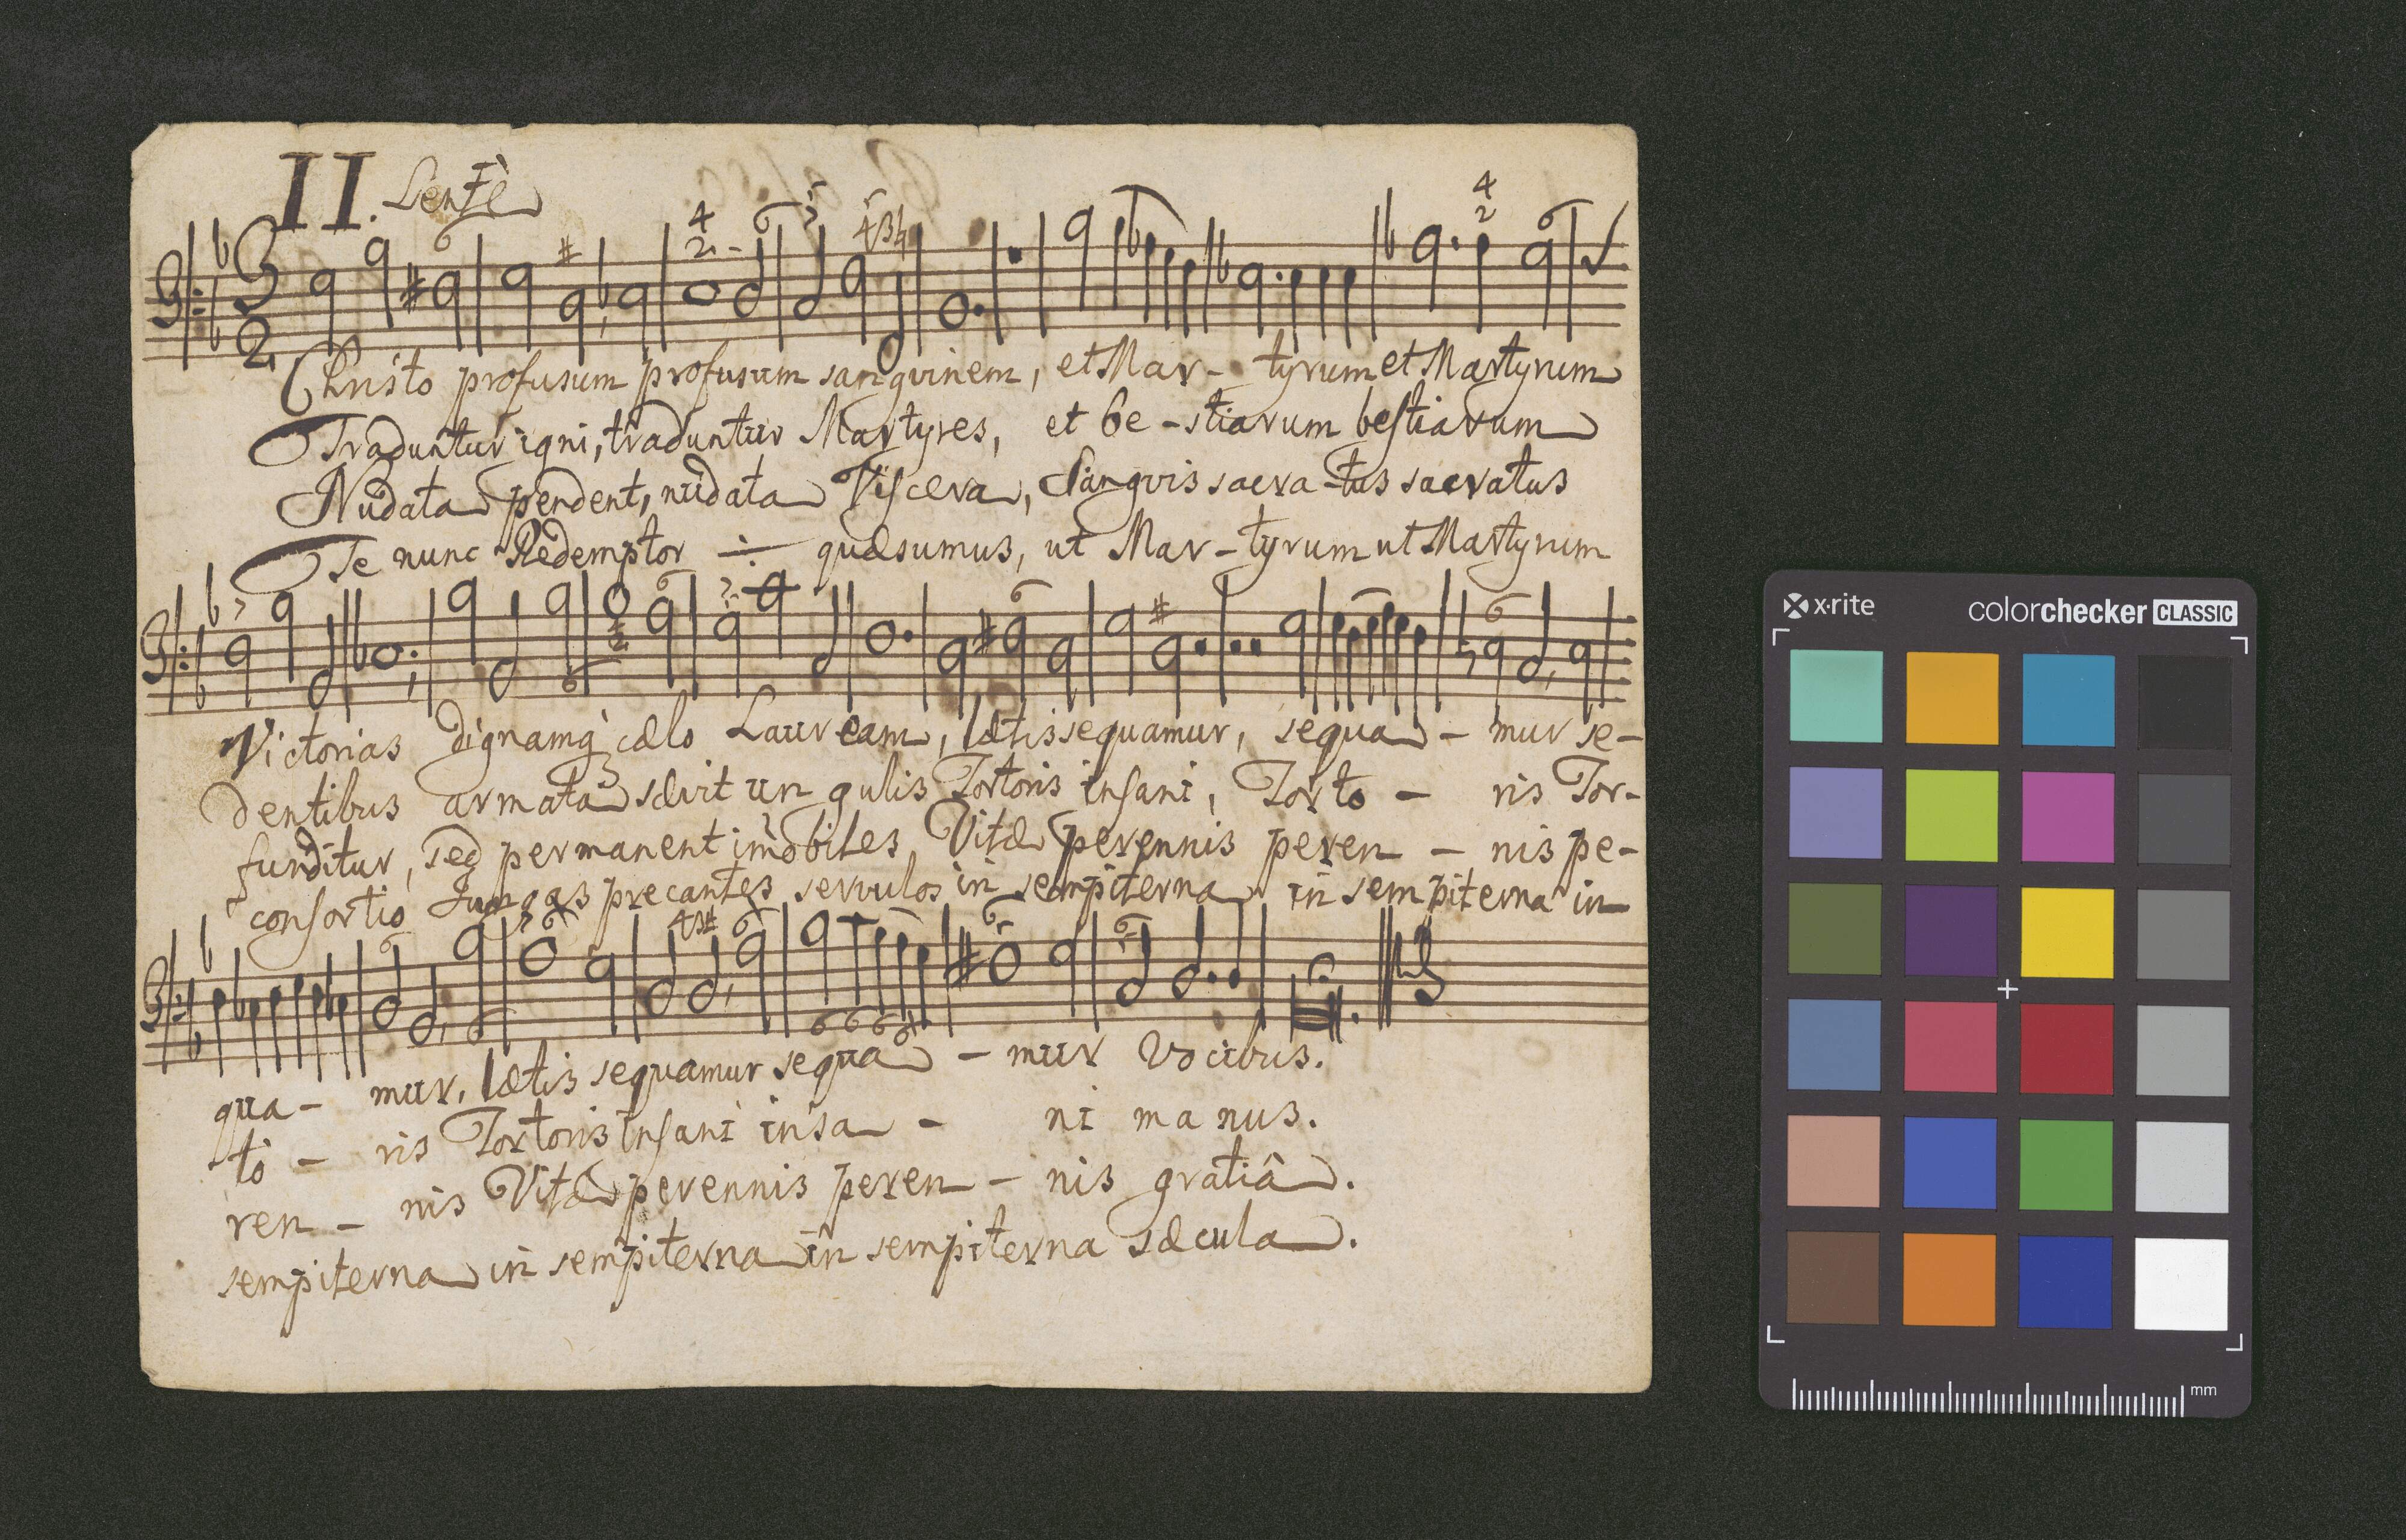 II. Lentè
Christo profusum profusum sanguinem, et Mar - tyrum et Martyrum
Traduntur igni, traduntur Martyres, et be - stiarum bestiarum
Nudata pendent, nudata Viscera, Sanguis sacra - tus sacratus
Te nunc Redemptor ÷ quæsumus, ut Mar - tyrum ut Martyrum
Victorias dignamq̀ cælo Lauream, lætis sequamur, sequa - mur se-
dentibus armata sævit ungulis Tortoris insani, Torto - ris Tor-
funditur, sed permanent im̀obiles Vitæ perennis peren - nis pe-
consortio Jungas precantes servulos in sempiterna in sempiterna in
qua - mur, lætis sequamur sequa - mur Vocibus.
to - ris Tortoris insani insa - ni manus.
ren - nis Vitæ perennis peren - nis gratiâ.
sempiterna in sempiterna in sempiterna sæcula.
x-rite colorchecker CLASSIC
mm